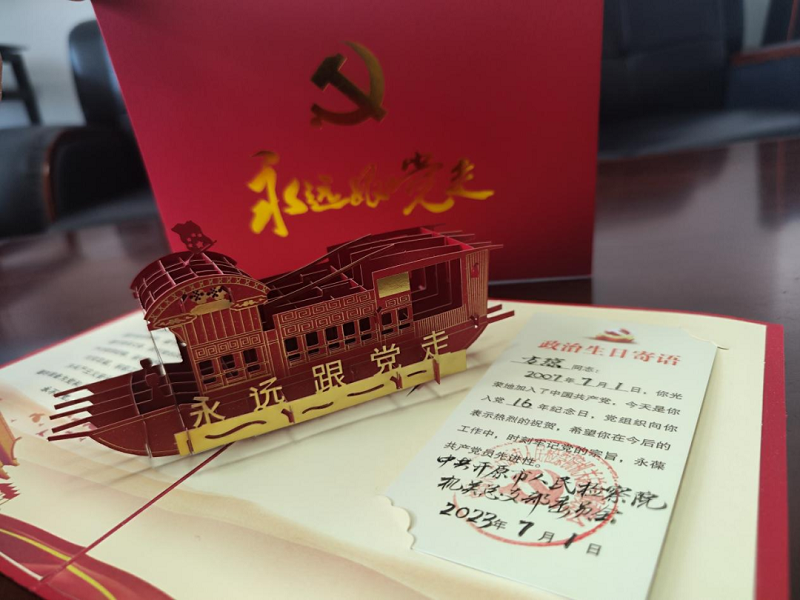 永远跟党走
永远跟党走
政治生日寄语
同志：
2007年7月1日，你光
荣地加入了中国共产党，今天是你
入党16年纪念日，党组织向你
表示热烈的祝贺，希望你在今后的
工作中，时刻牢记党的宗旨，永葆
共产党员先进性。
中共开原市人民检察院
机关总支部委员会
2023年7月1日